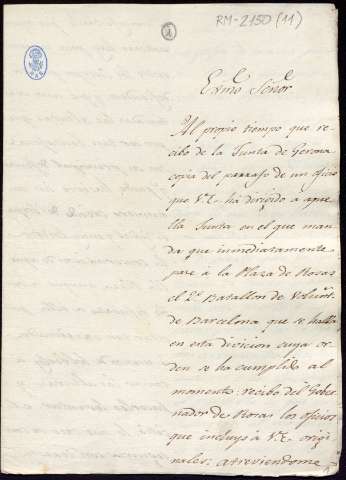 RM-2150 (11)
1
Exmo. Señor
Al propio tiempo que re-
cibo de la Junta de Gerona
copia del parrafo de un oficio
que V.E. ha dirigido a aque-
lla Junta en el que man-
da que inmediatamente
pase à la Plaza de Rosas
el 2º. Batallon de Volunt.
de Barcelona que se halla
en esta division cuya or-
den se ha cumplido al
momento, recibo del Gober-
nador de Rosas los oficios
que incluyo à V.E. origi-
nales; atreviendome